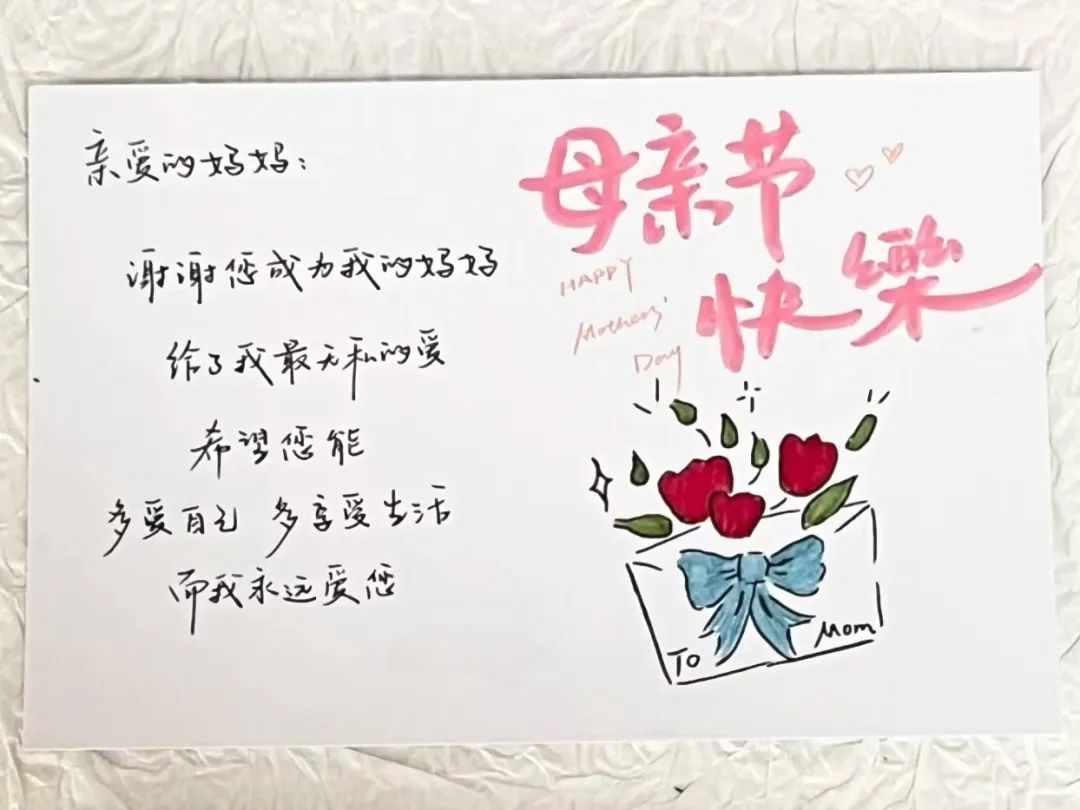 亲爱的妈妈：
谢谢您成为我的妈妈
给了我最无私的爱
希望您能
多爱自己 多享爱生活
而我永远爱您
母亲节
快樂
HAPPY
Mothers'
Day
To Mom